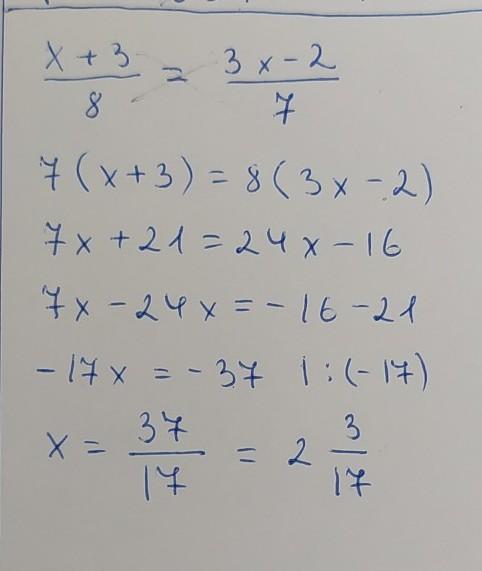 x + 3 / 8 = 3x - 2 / 7
7(x+3) = 8(3x-2)
7x + 21 = 24x - 16
7x - 24x = -16 - 21
-17x = -37 | : (-17)
x = 37/17 = 2 3/17